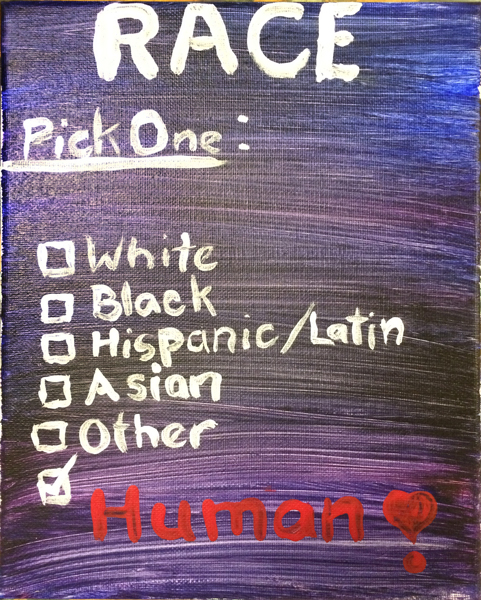 RACE
Pick One:
White
Black
Hispanic/Latin
Asian
Other
Human!